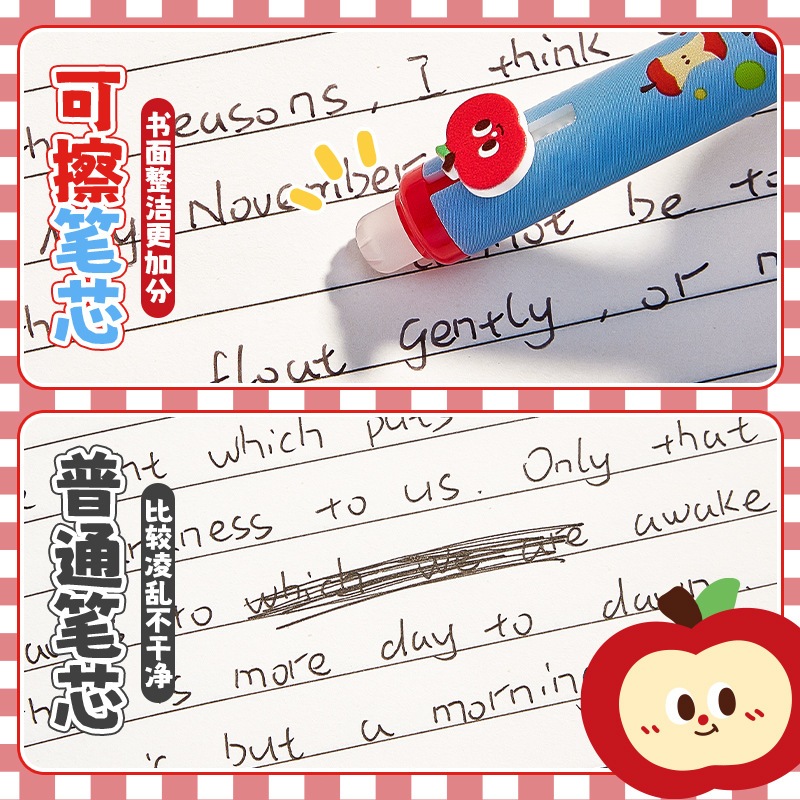 可擦笔芯
书面整洁更加分
easons, I think
November
not be to
float gently, or
普通笔芯
比较凌乱不干净
nt which puts
ness to us. Only that
to which we are awake
more day to dawn.
but a morning